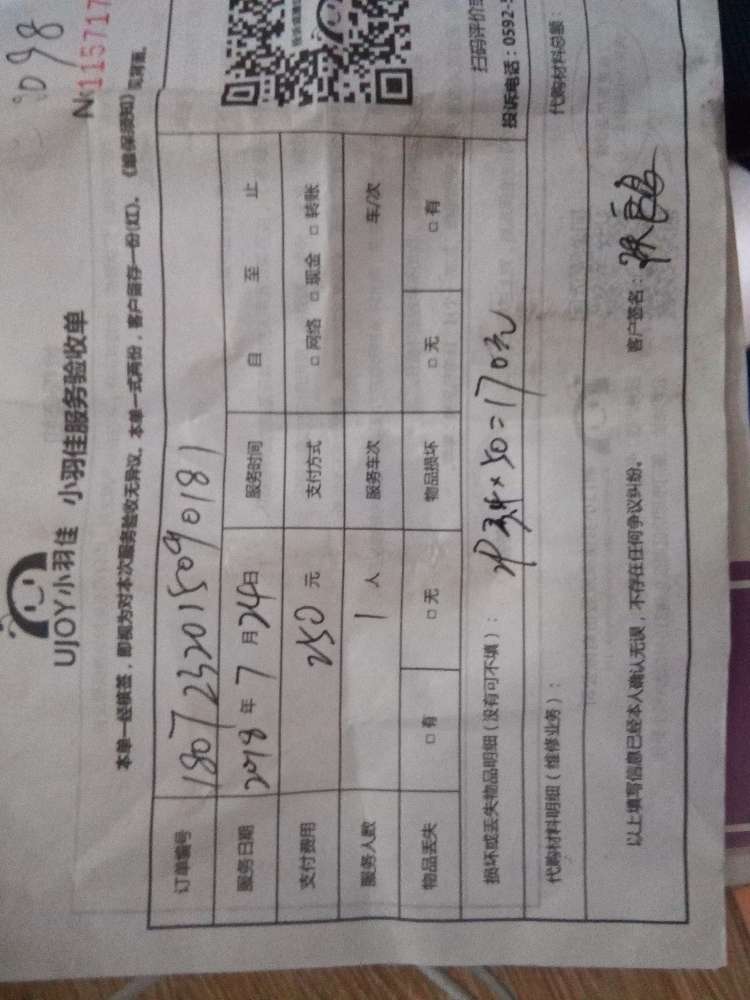 3098
№115717
UJOY小羽佳 小羽佳服务验收单
本单一经填签，即视为对本次服务验收无异议。本单一式两份，客户留存一份(红)。《维保须知》见背面。
订单编号 180723201509018 1
服务日期 2018 年 7 月 24日 服务时间 自 至 止
支付费用 250 元 支付方式 □ 网络 □ 现金 □ 转账
服务人数 1 人 服务车次 车/次
物品丢失 □ 有 □ 无 物品损坏 □ 无 □ 有
损坏或丢失物品明细（没有可不填）：
× 50 = 170元
扫码评价或
投诉电话：0592-5
代购材料明细（维修业务）：
代购材料总额：
以上填写信息已经本人确认无误，不存在任何争议纠纷。
客户签名：